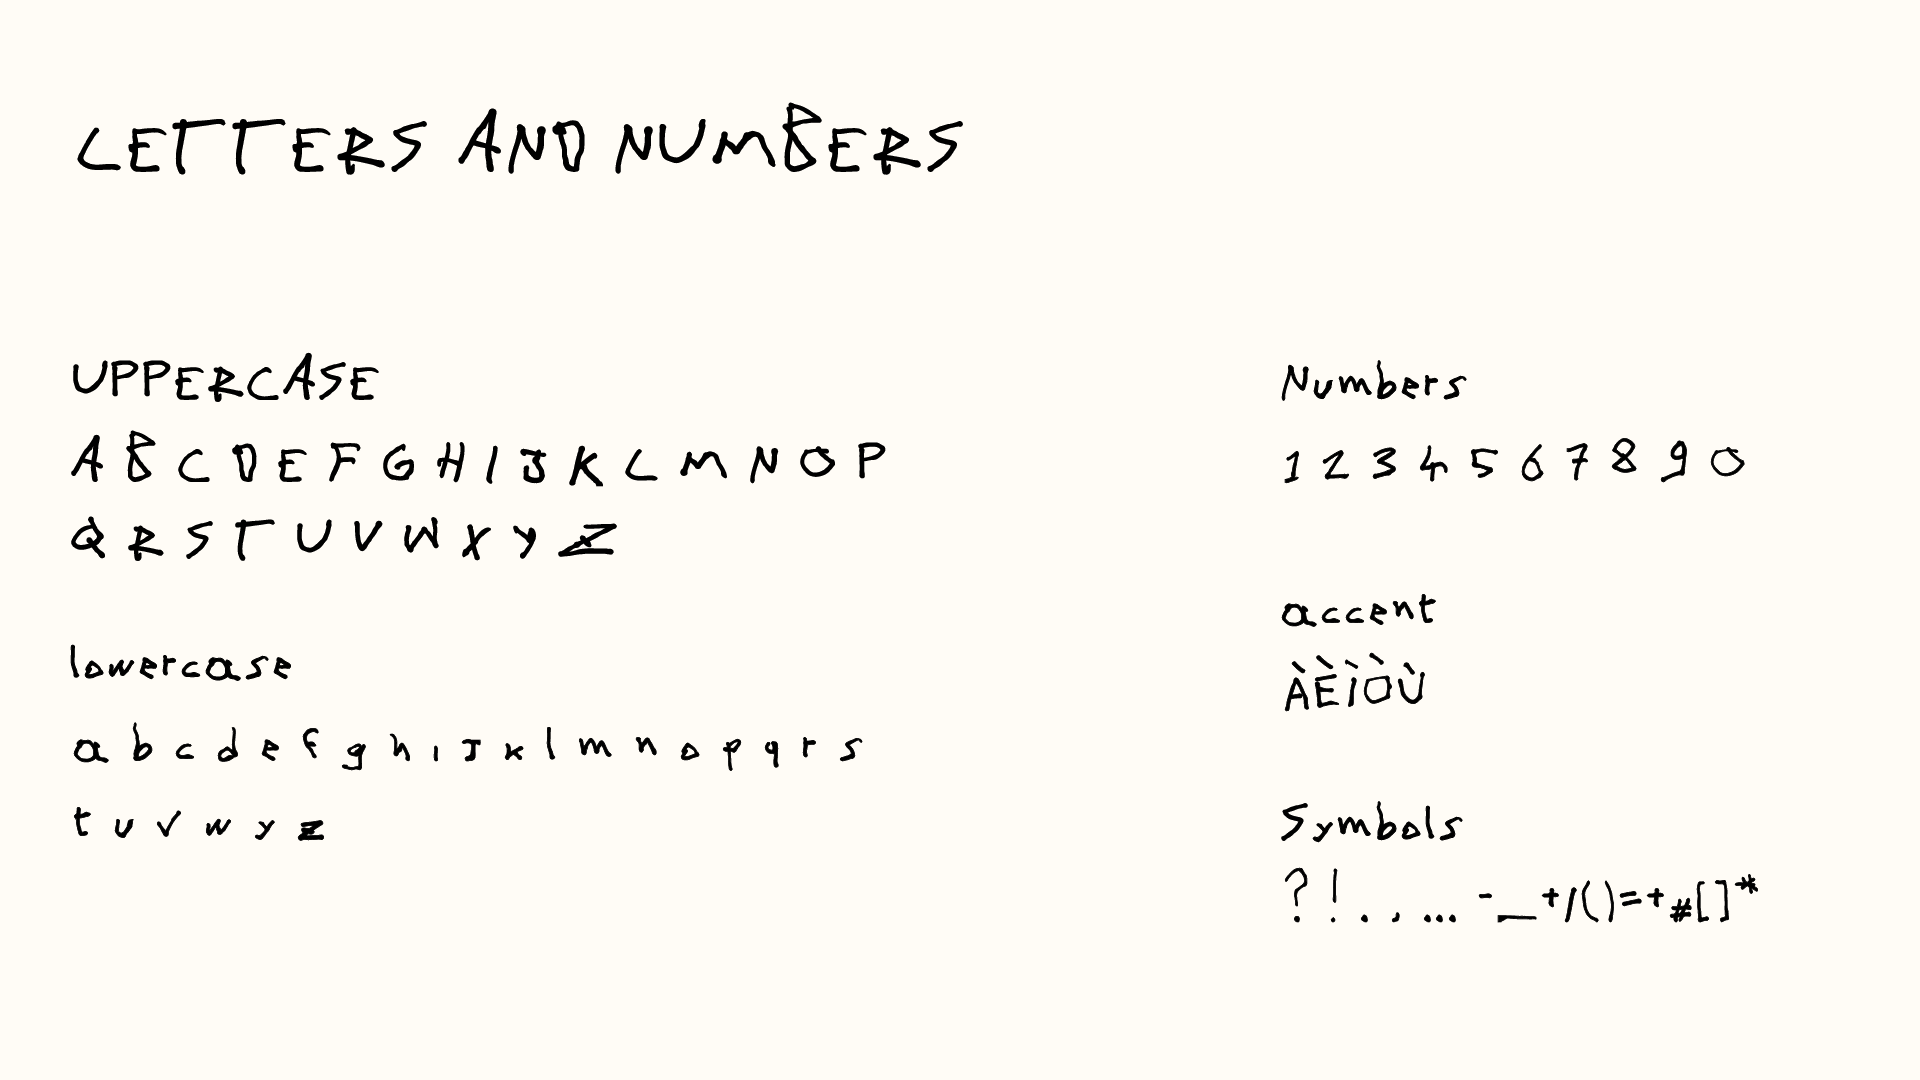 LETTERS AND NUMBERS
UPPERCASE
A B C D E F G H I J K L M N O P
Q R S T U V W X Y Z
lowercase
a b c d e f g h i j k l m n o p q r s
t u v w y z
Numbers
1 2 3 4 5 6 7 8 9 0
accent
ÀÈÌÒÙ
Symbols
? ! . , ... -_+/()=+#[]*